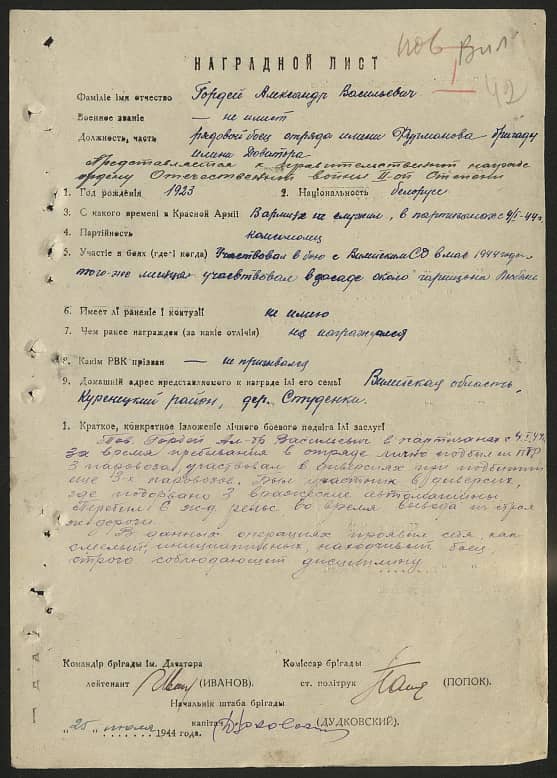 пов Вил
42
НАГРАДНОЙ ЛИСТ
Фамиліе імя отчество Гордей Александр Васильевич
Военное званіе — не имеет
Должность, часть рядовой боец отряда имени Фурманова бригады
имени Доватора
Представляется к правительственной награде
ордену Отечественной войны II-ой Степени
1. Год рождения 1923 2. Національность белорус
3. С какого времени в Красной Армії В армии не служил, в партизанах с 4/I-44 г.
4. Партійность комсомолец
5. Участіе в боях (где і когда) Участвовал в бою с Вилейским СД в мае 1944 года
того-же месяца участвовал в засаде около гарнизона
6. Имеет лі раненіе і контузії не имею
7. Чем ранее награжден (за какіе отлічія) не награждался
8. Какім РВК прізван — не призывался
9. Домашній адрес представляемого к награде ілі его семьі Вилейская область,
Куренецкий район, дер. Студенки.
1. Краткое, конкретное ізложеніе лічного боевого подвіга ілі заслуг
Тов. Гордей Ал-др Васильевич в партизанах с 4.I.44
За время пребывания в отряде лично подбил из ПТР
3 паровоза, участвовал в диверсиях при подбитии
еще 3-х паровозов. Был участник в диверсии,
где подорвано 3 вражеские автомашины
Перебил 6 ж-д рельс во время вывода из строя
ж-дороги.
В данных операциях проявил себя, как
смелый, инициативных, находчивый боец,
строго соблюдающий дисциплину
Командір брігады ім. Даватора Комiссар брігады
лейтенант (ИВАНОВ). ст. політрук (ПОПОК).
Начальнік штаба брігады
капітан (ДУДКОВСКИЙ).
„25" июля 1944 года.